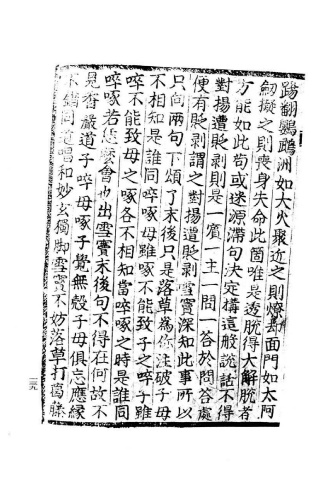 踢翻鸚鵡洲如大火聚近之則燎却面門如太阿
劒擬之則喪身失命此箇唯是透脫得大解脫者
方能如此苟或迷源滯句決定搆這般說話不得
對揚遭貶剝則是一賓一主一問一答於問答處
便有貶剝謂之對揚遭貶剝雪竇深知此事所以
只向兩句下頌了末後只是落草爲你注破子母
不相知是誰同啐啄母雖啄不能致子之啐子雖
啐不能致母之啄各不相知當啐啄之時是誰同
啐啄若恁麽會也出雪竇末後句不得在何故不
見香嚴道子啐母啄子覺無殼子母俱忘應緣
不錯同道唱和妙玄獨脚雪竇不妨落草打葛藤